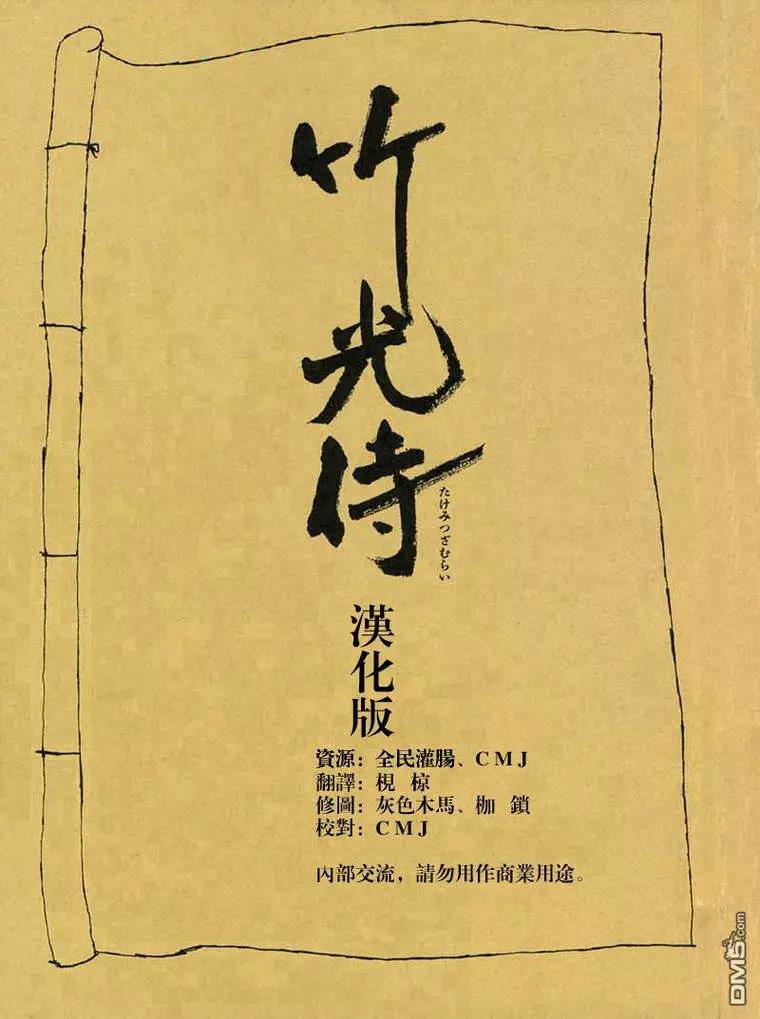 竹光侍
たけみつざむらい
漢化版
資源：全民灌腸、CMJ
翻譯：梘 椋
修圖：灰色木馬、枷 鎖
校對：CMJ
內部交流，請勿用作商業用途。
DM5.com